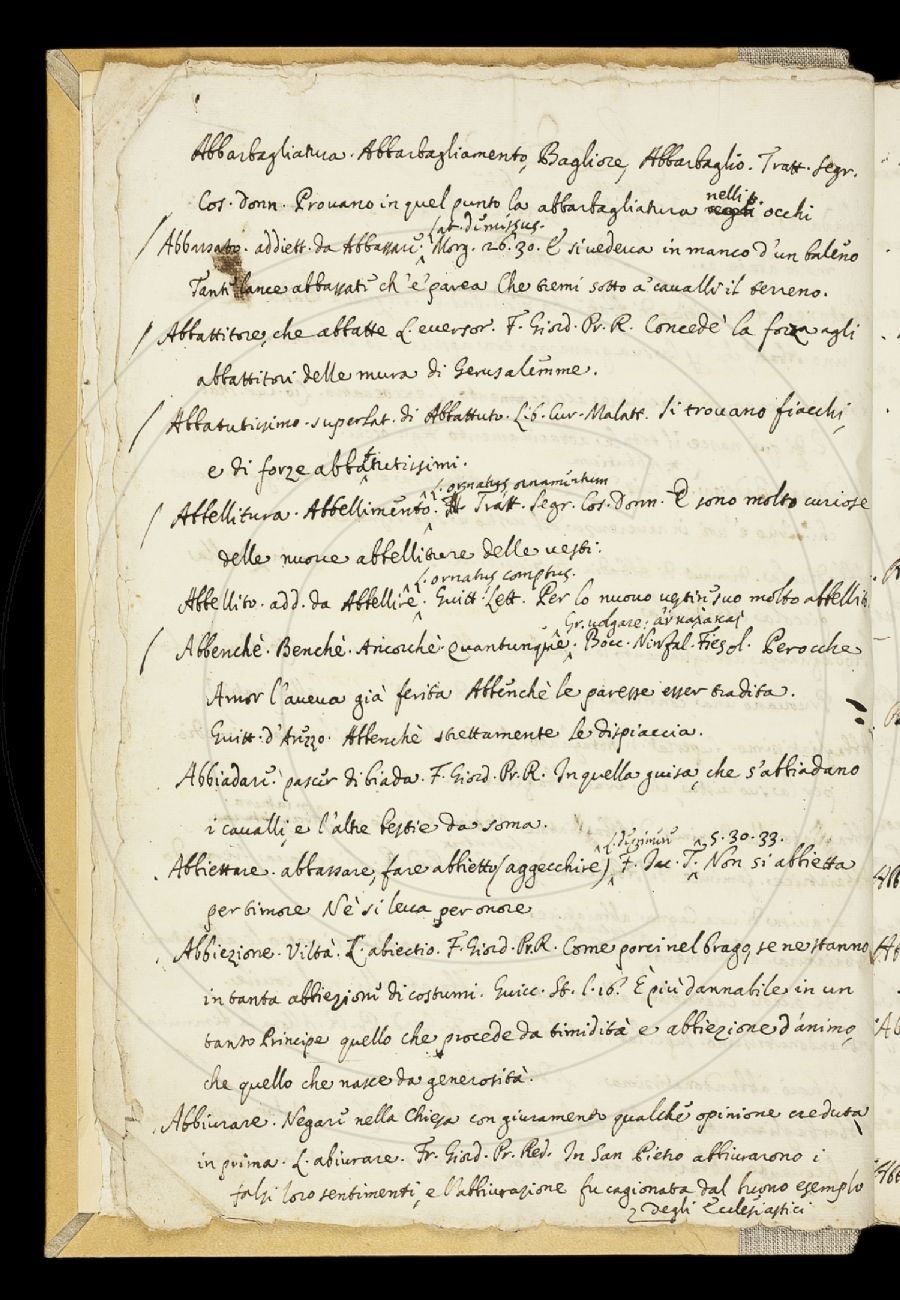 Abbarbagliatura. Abbarbagliamento, Bagliore, Abbarbaglio. Tratt. Segr.
Cos. Donn. Provano in quel punto la abbarbagliatura nelli occhi
Lat. dimissus.
Abbassato. addiett. da Abbassare. Morg. 26. 30. E si vedeva in manco d'un baleno
Tante lance abbassate ch'e' parea Che tremi sotto a' cavalli il terreno.
Abbattitore, che abbatte L. eversor. F. Giord. Pr. R. Concedè la forza agli
abbattitori delle mura di Gerusalemme.
Abbatutissimo. superlat. di Abbattuto. Lib. Cur. Malatt. Si trovano fiacchi,
e di forze abbattutissimi.
L. ornatus ornamentum
Abbellitura. Abbellimento. Tratt. Segr. Cos. Donn. E sono molto curiose
delle nuove abbelliture delle vesti.
L. ornatus comptus.
Abbellito. add. da Abbellire. Guitt. Lett. Per lo nuovo vestire suo molto abbellito
Gr. volgare. ἂν καλὰ καὶ
Abbenchè. Benchè. Ancorchè. Quantunque. Bocc. Ninfal. Fiesol. Perocche
Amor l'aveva già ferita Abbenchè le paresse esser tradita.
Guitt. d'Arezzo. Abbenchè strettamente le dispiaccia.
Abbiadare. pascer di biada. F. Giord. Pr. R. In quella guisa, che s'abbiadano
i cavalli, e l'altre bestie da soma.
5. 30. 33.
Abbiettare. abbassare, fare abbietto (aggecchire) F. Jac. T. Non si abbietta
per timore Nè si leva per onore
Abbiezione. Viltà. L. abiectio. F. Giord. Pr. R. Come porci nel brago, se ne stanno
in tanta abbiezione di costumi. Guicc. St. l. 16. È più dannabile in un
tanto Principe quello che procede da timidità e abbiezione d'animo,
che quello che nasce da generosità.
Abbiurare. Negare nella Chiesa con giuramento qualche opinione creduta
in prima. L. abiurare. Fr. Giord. Pr. Red. In San Pietro abbiurarono i
falsi loro sentimenti, e l'abbiurazione fu cagionata dal buono esemplo
degli Ecclesiastici